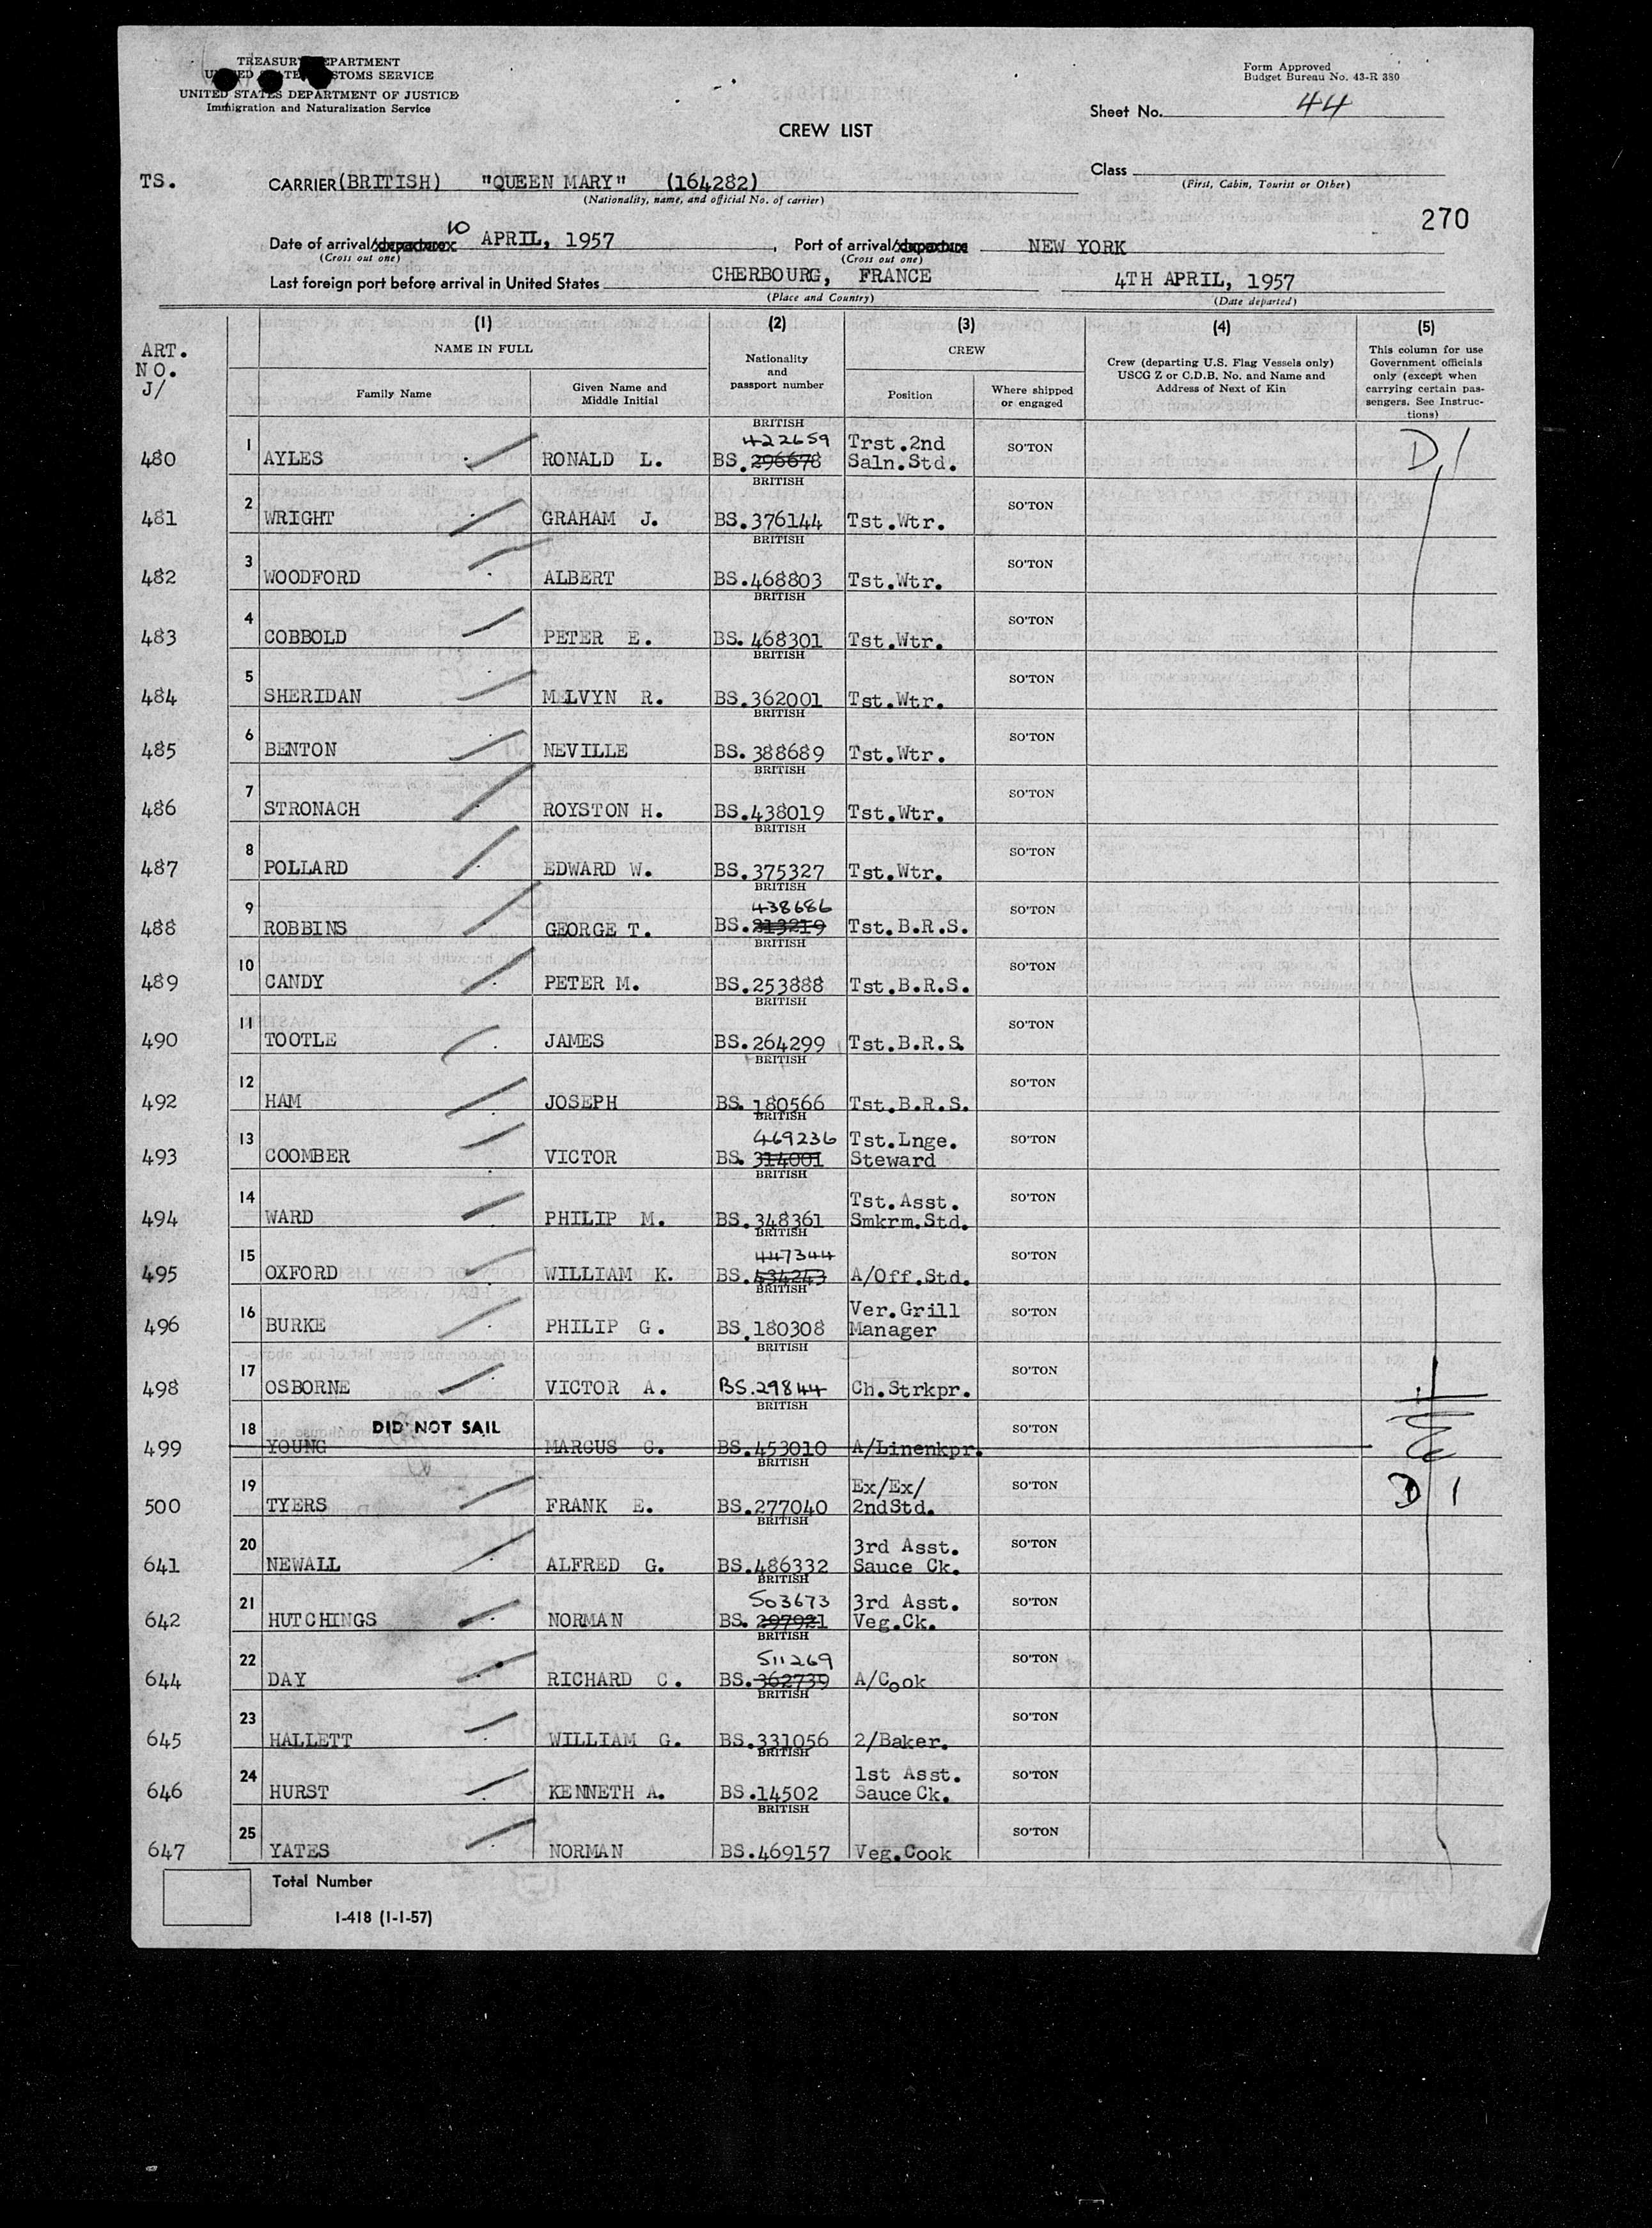 TREASURY DEPARTMENT
UNITED STATES CUSTOMS SERVICE
UNITED STATES DEPARTMENT OF JUSTICE
Immigration and Naturalization Service
Form Approved
Budget Bureau No. 43-R 380
Sheet No. 44
CREW LIST
TS.
CARRIER (BRITISH) "QUEEN MARY" (164282)
(Nationality, name, and official No. of carrier)
Class
(First, Cabin, Tourist or Other)
270
Date of arrival/departure 10 APRIL, 1957, Port of arrival/departure NEW YORK
(Cross out one) (Cross out one)
Last foreign port before arrival in United States CHERBOURG, FRANCE 4TH APRIL, 1957
(Place and Country) (Date departed)
ART. NO. J/
(1) NAME IN FULL
Family Name
Given Name and Middle Initial
(2) Nationality and passport number
(3) CREW
Position
Where shipped or engaged
(4) Crew (departing U.S. Flag Vessels only) USCG Z or C.D.B. No. and Name and Address of Next of Kin
(5) This column for use Government officials only (except when carrying certain passengers. See Instructions)
480 1 AYLES RONALD L. BRITISH 422659 BS.296678 Trst.2nd Saln.Std. SO'TON D1
481 2 WRIGHT GRAHAM J. BRITISH BS.376144 Tst.Wtr. SO'TON
482 3 WOODFORD ALBERT BRITISH BS.468803 Tst.Wtr. SO'TON
483 4 COBBOLD PETER E. BRITISH BS.468301 Tst.Wtr. SO'TON
484 5 SHERIDAN MELVYN R. BRITISH BS.362001 Tst.Wtr. SO'TON
485 6 BENTON NEVILLE BRITISH BS.388689 Tst.Wtr. SO'TON
486 7 STRONACH ROYSTON H. BRITISH BS.438019 Tst.Wtr. SO'TON
487 8 POLLARD EDWARD W. BRITISH BS.375327 Tst.Wtr. SO'TON
488 9 ROBBINS GEORGE T. BRITISH 438686 BS.313219 Tst.B.R.S. SO'TON
489 10 CANDY PETER M. BRITISH BS.253888 Tst.B.R.S. SO'TON
490 11 TOOTLE JAMES BRITISH BS.264299 Tst.B.R.S. SO'TON
492 12 HAM JOSEPH BRITISH BS.180566 Tst.B.R.S. SO'TON
493 13 COOMBER VICTOR BRITISH 469236 BS.314001 Tst.Lnge. Steward SO'TON
494 14 WARD PHILIP M. BRITISH BS.348361 Tst.Asst. Smkrm.Std. SO'TON
495 15 OXFORD WILLIAM K. BRITISH 447344 BS.434243 A/Off.Std. SO'TON
496 16 BURKE PHILIP G. BRITISH BS.180308 Ver.Grill Manager SO'TON
498 17 OSBORNE VICTOR A. BRITISH BS.29844 Ch.Strkpr. SO'TON
499 18 YOUNG DID NOT SAIL MARCUS C. BRITISH BS.453010 A/Linenkpr. SO'TON
500 19 TYERS FRANK E. BRITISH BS.277040 Ex/Ex/ 2ndStd. SO'TON D 1
641 20 NEWALL ALFRED G. BRITISH BS.486332 3rd Asst. Sauce Ck. SO'TON
642 21 HUTCHINGS NORMAN BRITISH 503673 BS.297921 3rd Asst. Veg.Ck. SO'TON
644 22 DAY RICHARD C. BRITISH 511269 BS.362739 A/Cook SO'TON
645 23 HALLETT WILLIAM G. BRITISH BS.331056 2/Baker. SO'TON
646 24 HURST KENNETH A. BRITISH BS.14502 1st Asst. Sauce Ck. SO'TON
647 25 YATES NORMAN BRITISH BS.469157 Veg.Cook SO'TON
Total Number
I-418 (1-1-57)